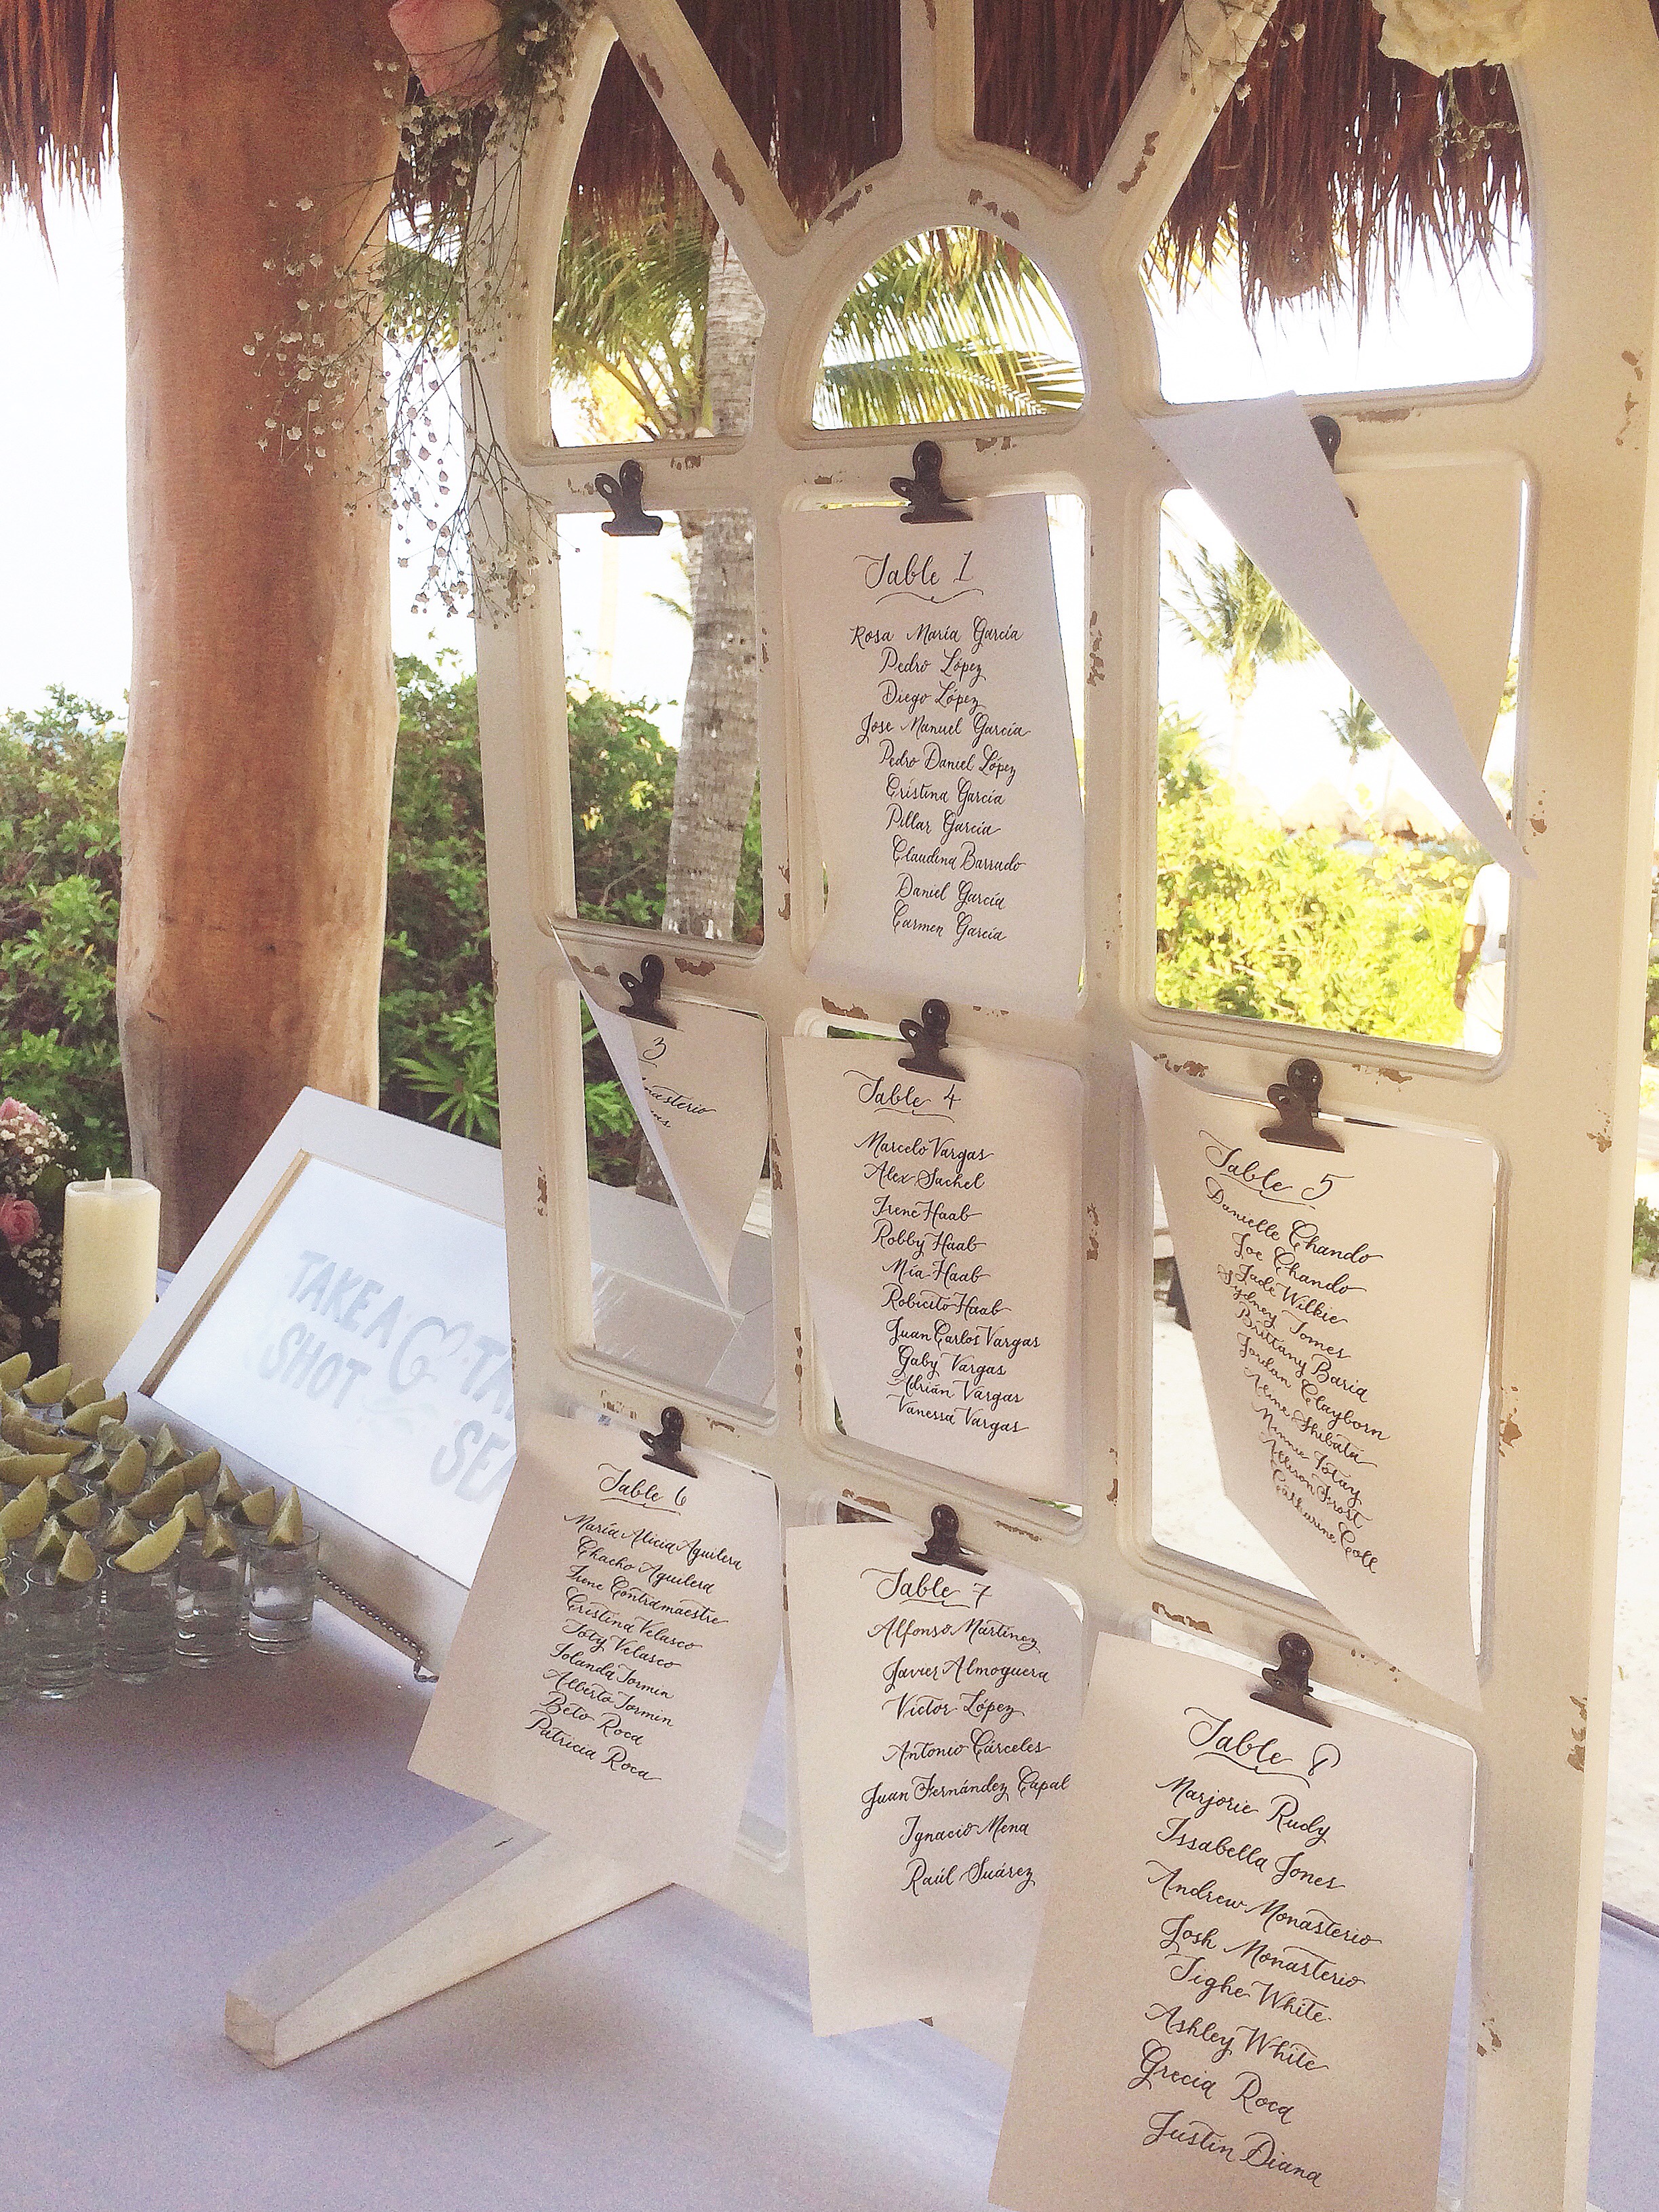 Table 1
Rosa María García
Pedro López
Diego López
Jose Manuel García
Pedro Daniel López
Cristina García
Pillar García
Claudina Barrado
Daniel García
Carmen García
3
Table 4
Marcelo Vargas
Alex Sachel
Irene Haab
Robby Haab
Mía Haab
Robicito Haab
Juan Carlos Vargas
Gaby Vargas
Adrián Vargas
Vanessa Vargas
Table 5
Danielle Chando
Joe Chando
Jade Wilkie
Sydney Tomes
Brittany Baria
Jordan Clayborn
Aline Shibata
Minnie Totay
Allison Frost
Catharine Cole
Table 6
María Alicia Aguilera
Chacho Aguilera
Irene Contramaestre
Cristina Velasco
Toty Velasco
Iolanda Tormin
Alberto Tormin
Beto Roca
Patricia Roca
Table 7
Alfonso Martínez
Javier Almoguera
Victor López
Antonio Cárceles
Juan Fernández Capal
Ignacio Mena
Raúl Suárez
Table 8
Marjorie Rudy
Issabella Jones
Andrew Monasterio
Josh Monasterio
Tighe White
Ashley White
Grecia Roca
Justin Diana
TAKE A
SHOT